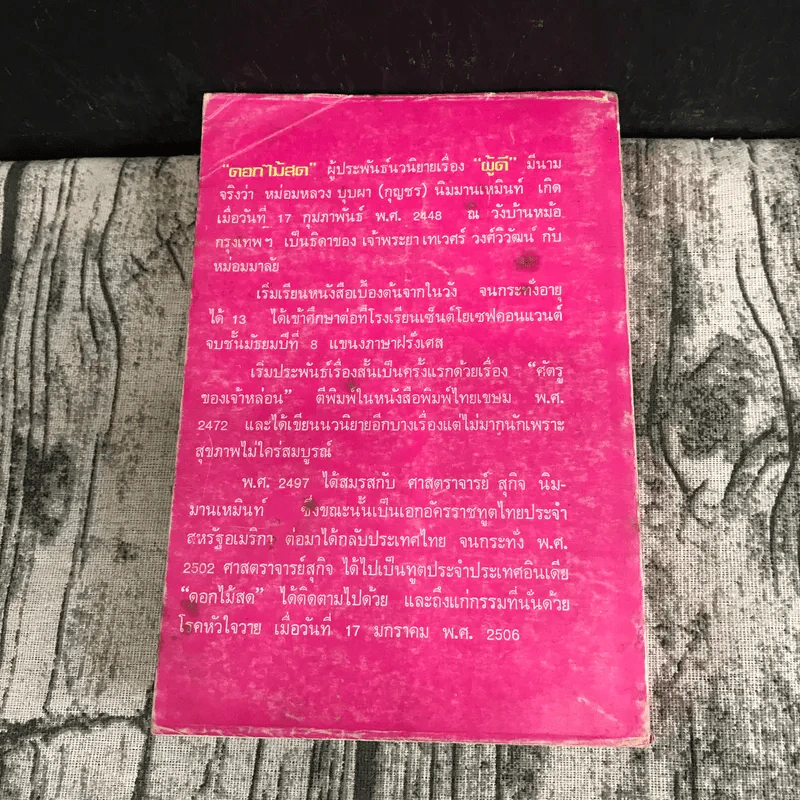 "ดอกไม้สด" ผู้ประพันธ์นวนิยายเรื่อง "ผู้ดี" มีนาม
จริงว่า หม่อมหลวง บุบผา (กุญชร) นิมมานเหมินท์ เกิด
เมื่อวันที่ 17 กุมภาพันธ์ พ.ศ. 2448 ณ วังบ้านหม้อ
กรุงเทพฯ เป็นธิดาของ เจ้าพระยาเทเวศร์ วงศ์วิวัฒน์ กับ
หม่อมมาลัย
เริ่มเรียนหนังสือเบื้องต้นจากในวัง จนกระทั่งอายุ
ได้ 13 ได้เข้าศึกษาต่อที่โรงเรียนเซ็นต์โยเซฟคอนแวนต์
จบชั้นมัธยมปีที่ 8 แขนงภาษาฝรั่งเศส
เริ่มประพันธ์เรื่องสั้นเป็นครั้งแรกด้วยเรื่อง "ศัตรู
ของเจ้าหล่อน" ตีพิมพ์ในหนังสือพิมพ์ไทยเขษม พ.ศ.
2472 และได้เขียนนวนิยายอีกบางเรื่องแต่ไม่มากนักเพราะ
สุขภาพไม่ใคร่สมบูรณ์
พ.ศ. 2497 ได้สมรสกับ ศาสตราจารย์ สุกิจ นิม-
มานเหมินท์ ซึ่งขณะนั้นเป็นเอกอัครราชทูตไทยประจำ
สหรัฐอเมริกา ต่อมาได้กลับประเทศไทย จนกระทั่ง พ.ศ.
2502 ศาสตราจารย์สุกิจ ได้ไปเป็นทูตประจำประเทศอินเดีย
"ดอกไม้สด" ได้ติดตามไปด้วย และถึงแก่กรรมที่นั่นด้วย
โรคหัวใจวาย เมื่อวันที่ 17 มกราคม พ.ศ. 2506